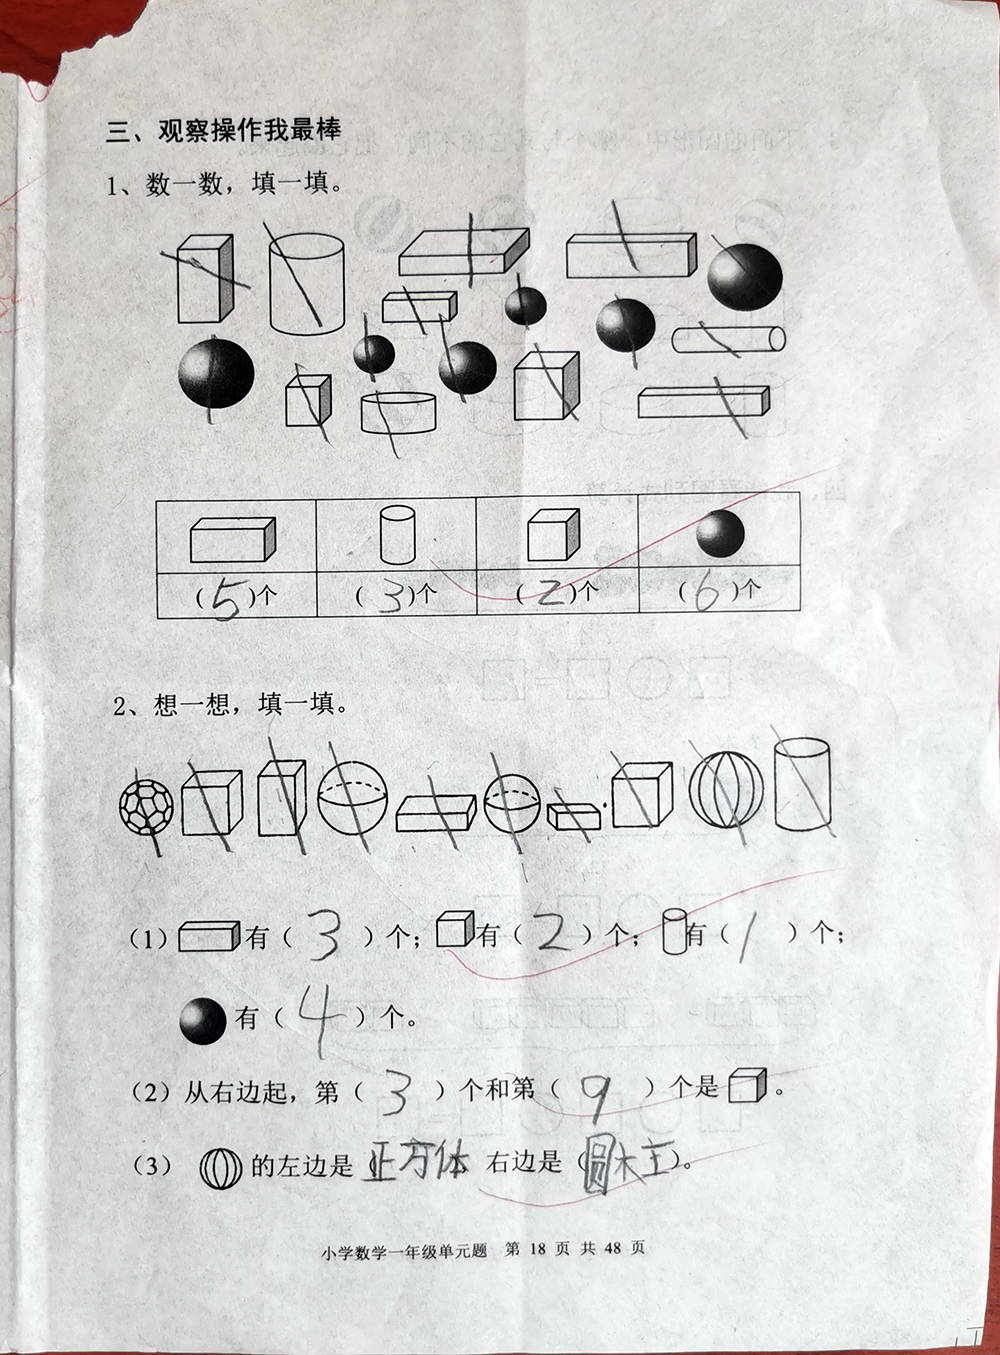 三、观察操作我最棒
1、数一数，填一填。
(5)个 (3)个 (2)个 (6)个
2、想一想，填一填。
（1）有（3）个；有（2）个；有（1）个；
有（4）个。
（2）从右边起，第（3）个和第（9）个是。
（3）的左边是（正方体 右边是（圆柱）。
小学数学一年级单元题 第 18 页 共 48 页